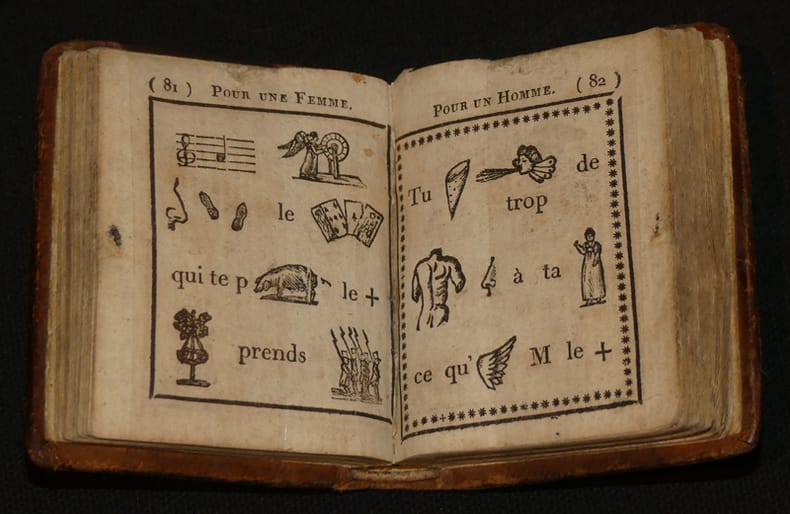 ( 81 ) POUR UNE FEMME.
le
qui te p , le +
prends
POUR UN HOMME. ( 82 )
Tu de
trop
à ta
ce qu' M le +